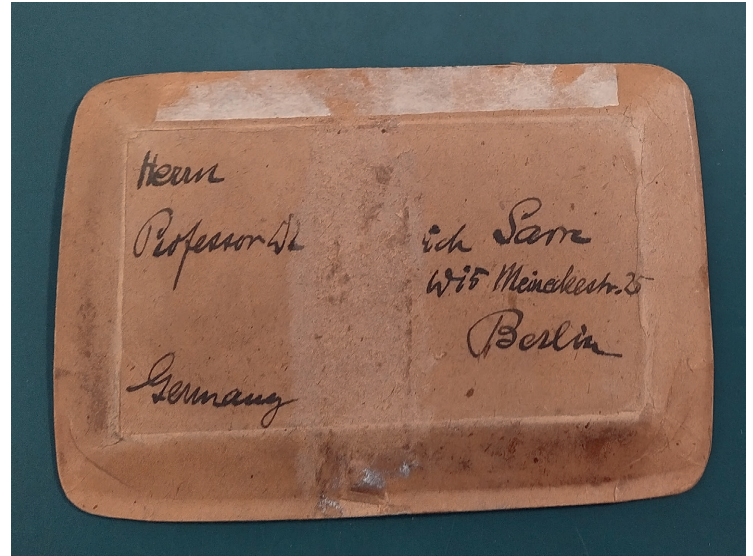 Herrn
Professor Dr ich Sarre
W15 Meineckestr. 25
Berlin
Germany